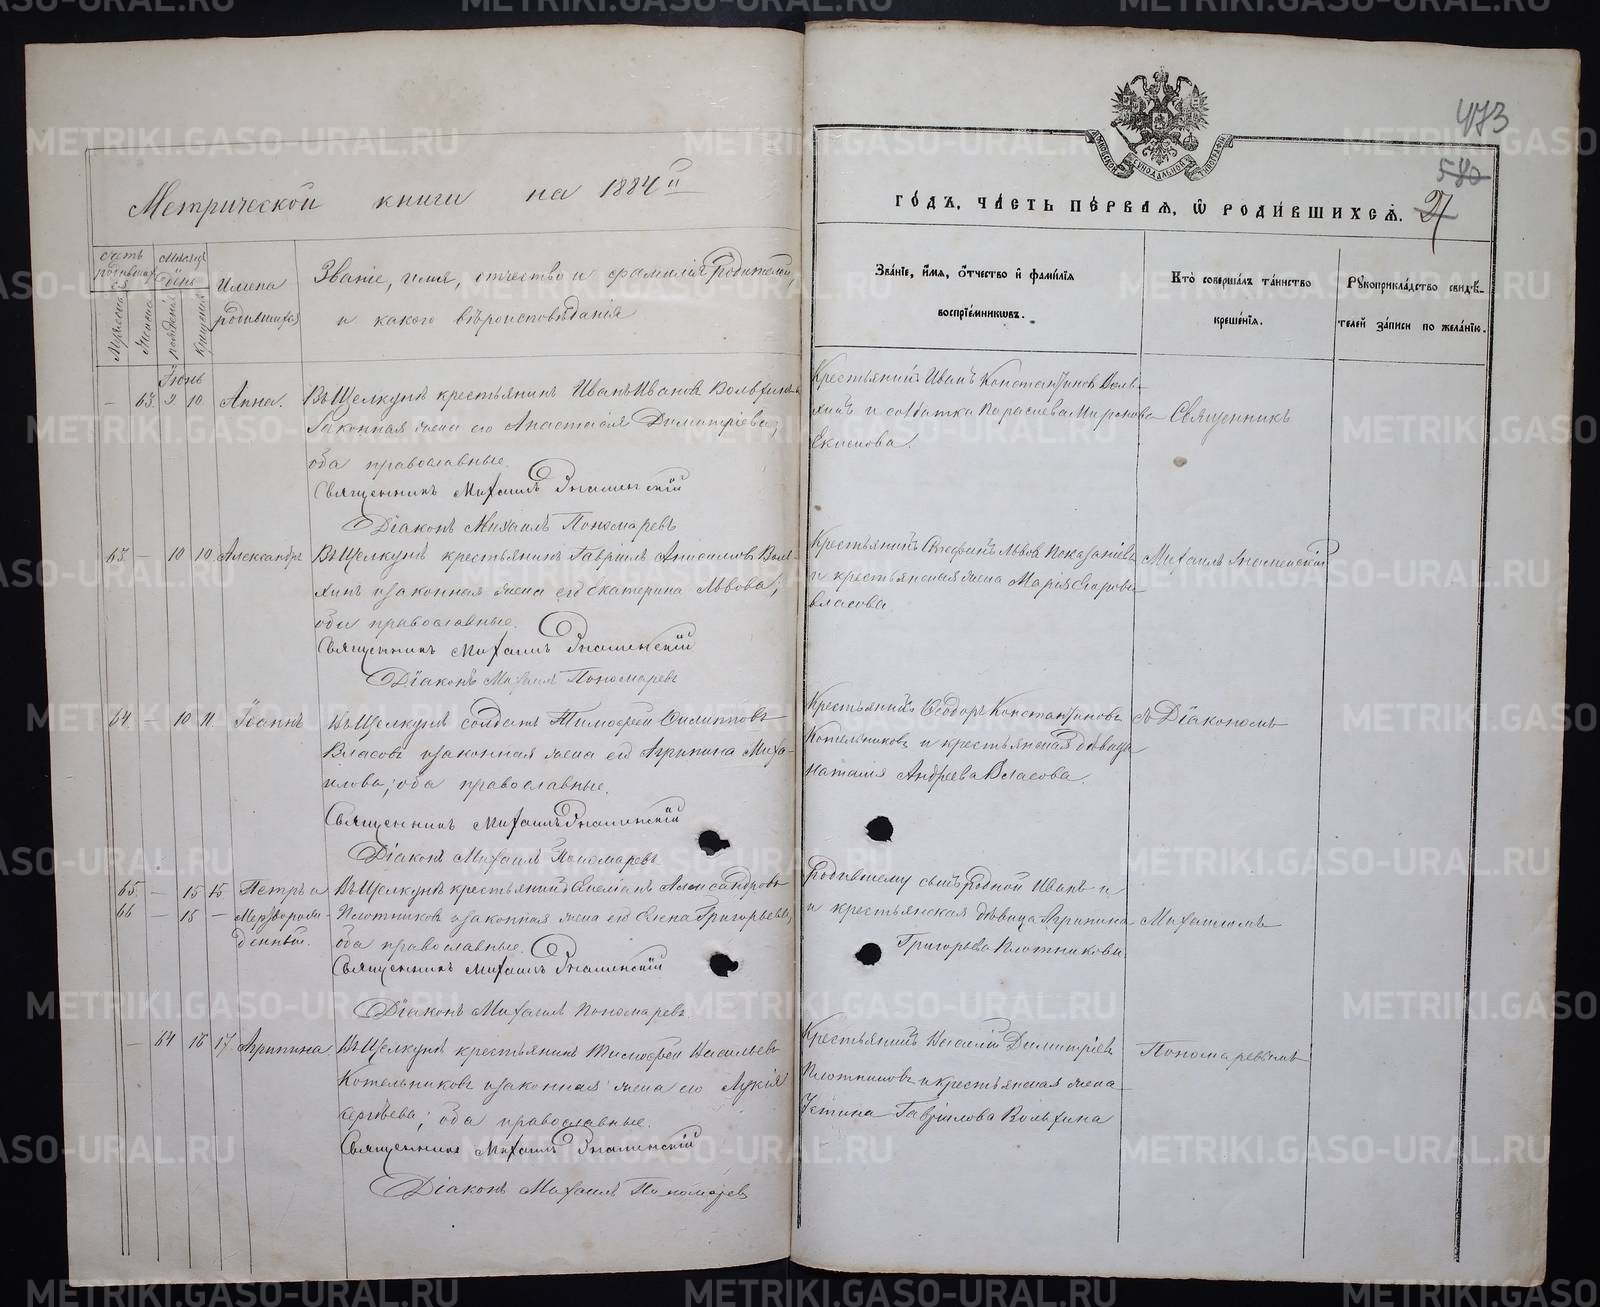 Метрической книги на 1884й
годъ, часть первая, ѡ родившихся.
473
580
27
Счетъ родившихся
Мужеска
Женска
Мѣсяцъ и день
рожденія
крещенія
Имена родившихся
Званіе, имя, отчество и фамилія родителей,
и какого вѣроисповѣданія
Званіе, имя, отчество и фамилія
воспріемниковъ.
Кто совершалъ таинство
крещенія.
Рукоприкладство свидѣ-
телей записи по желанію.
Іюнь
— 63 9 10 Анна.
Въ Щелкунѣ крестьянинъ Иванъ Ивановъ Вольхинъ и
законная жена его Анастасія Димитріева;
оба православные.
Священникъ Михаилъ Знаменскій
Діаконъ Михаилъ Пономаревъ
Крестьянинъ Иванъ Константиновъ Воль-
хинъ и солдатка Параскева Миронова
Священникъ
63 — 10 10 Александръ
Въ Щелкунѣ крестьянинъ Гавріилъ Анисимовъ Воль-
хинъ и законная жена его Екатерина Львова;
оба православные.
Священникъ Михаилъ Знаменскій
Діаконъ Михаилъ Пономаревъ
Крестьянинъ Львовъ
и крестьянская жена Марія
Власова
Михаилъ Знаменскій
64 — 10 11 Іоаннъ
Въ Щелкунѣ солдатъ Тимофей Филипповъ
Власовъ и законная жена его Агрипина Миха-
илова; оба православные.
Священникъ Михаилъ Знаменскій
Діаконъ Михаилъ Пономаревъ
Крестьянинъ Ѳеодоръ Константиновъ
Котельниковъ и крестьянская дѣвица
Наталія Андреева Власова.
съ Діакономъ
65 — 15 15 Петръ и
66 — 15 — Мертворож-
денный.
Въ Щелкунѣ крестьянинъ Александровъ
Плотниковъ и законная жена его Елена Григорьева;
оба православные.
Священникъ Михаилъ Знаменскій
Діаконъ Михаилъ Пономаревъ.
Родившему братъ родной Иванъ и
и крестьянская дѣвица Агрипина
Григорьева Плотникова
Михаиломъ
— 64 16 17 Агрипина.
Въ Щелкунѣ крестьянинъ Тимофей Васильевъ
Котельниковъ и законная жена его Лукія
Сергѣева; оба православные.
Священникъ Михаилъ Знаменскій
Діаконъ Михаилъ Пономаревъ
Крестьянинъ Василій Димитріевъ
Плотниковъ и крестьянская жена
Устина Гавріилова Вольхина
Пономаревымъ
METRIKI.GASO-URAL.RU